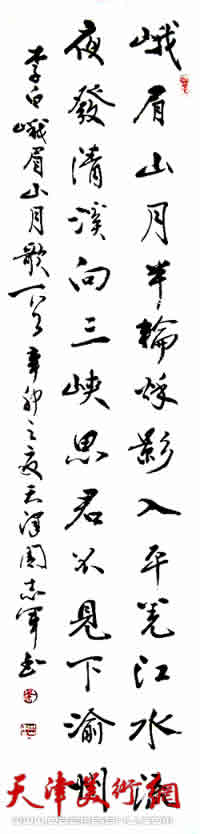 峨眉山月半輪秋影入平羌江水流
夜發清溪向三峽思君不見下渝州
李白峨眉山月歌一首辛卯之夏天津周志軍书
天津美術網